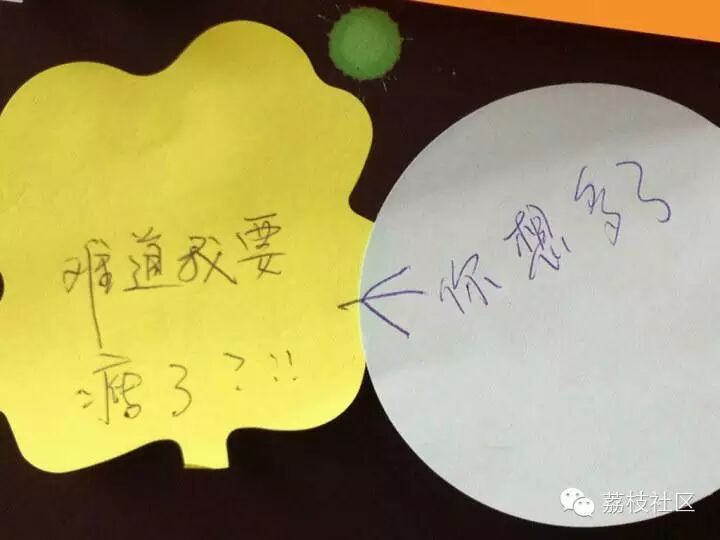 难道我要
瘦了?!!
你想多了
荔枝社区